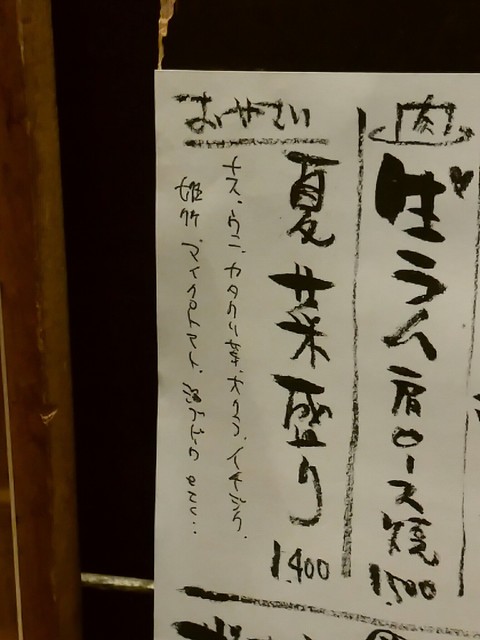 肉
生ラム肩ロース焼
1,500
おやさい
夏菜盛り
1,400
ナス、カタクリ菜、オクラ、イチジク、
姫竹、マイクロトマト、